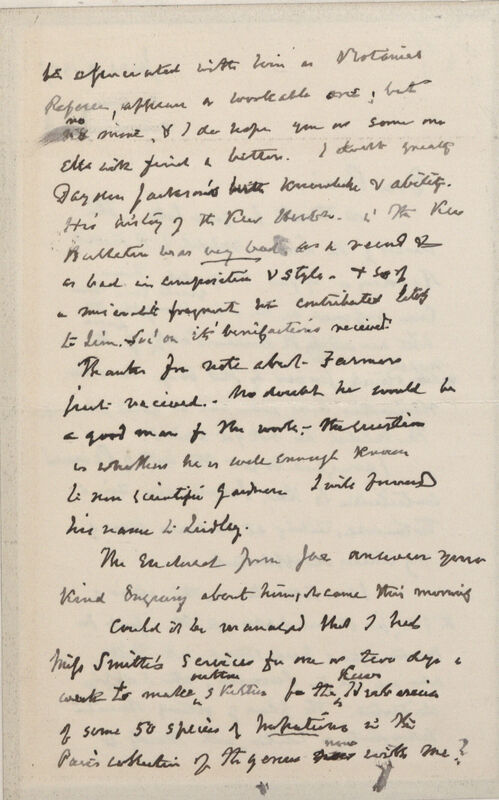 be associated with him as Botanical
Referee, appears a workable one; but
no mine, & I do hope you or some one
else will find a better. I doubt greatly
Daydon Jackson's knowledge & ability.
His history of the Kew Herbm. in the Kew
Bulletin was very bad as a record &
as bad in composition & style. & so of
a miserable fragment he contributed lately
to Linn. Soc. on its benefactions received.
Thanks for note about Farmers
just received. No doubt he would be
a good man for the work, - the question
is whether he is well enough known
to scientific gardeners I will forward
his name to Lindley.
The enclosed from Joe answers your
kind enquiry about him, it came this morning
Could it be managed that I had
Miss Smith's services for one or two days a
week to make outline sketches for the Kew Herbarium
of some 50 species of Impatiens in the
Paris collection of the genus now with me?